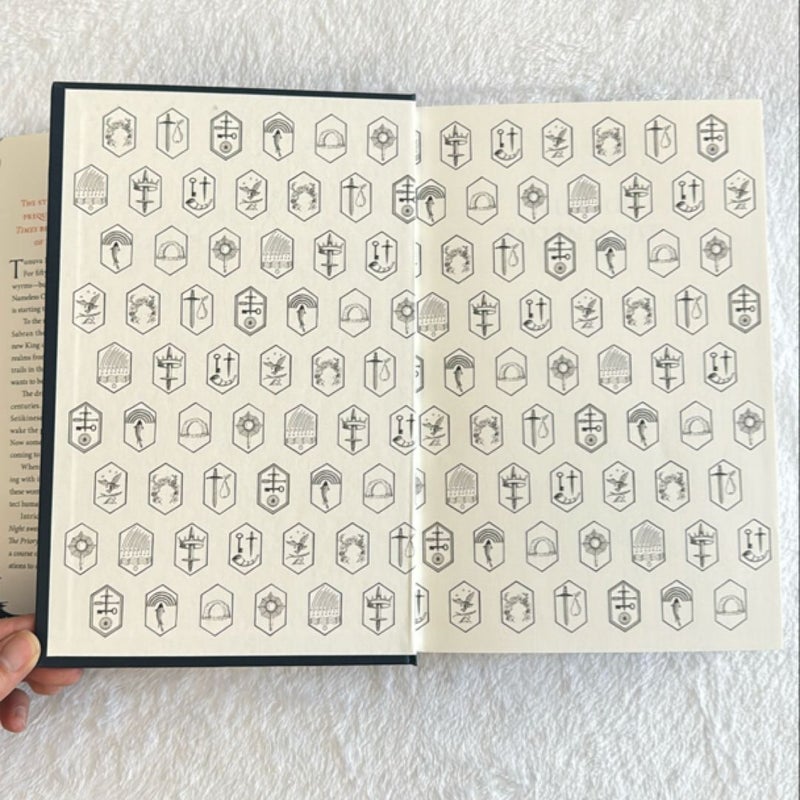 THE ST
PREQU
TIMES BE
OF
Tunuva
For fif
wyrms—bu
Nameless O
is starting
To the
Sabran the
new King
realms from
trails in the
wants to be
The dr
centuries.
Seiikinese
wake the
Now som
coming to
When
ing with i
these wom
tect huma
Intric
Night swe
The Priory
a course o
ations to